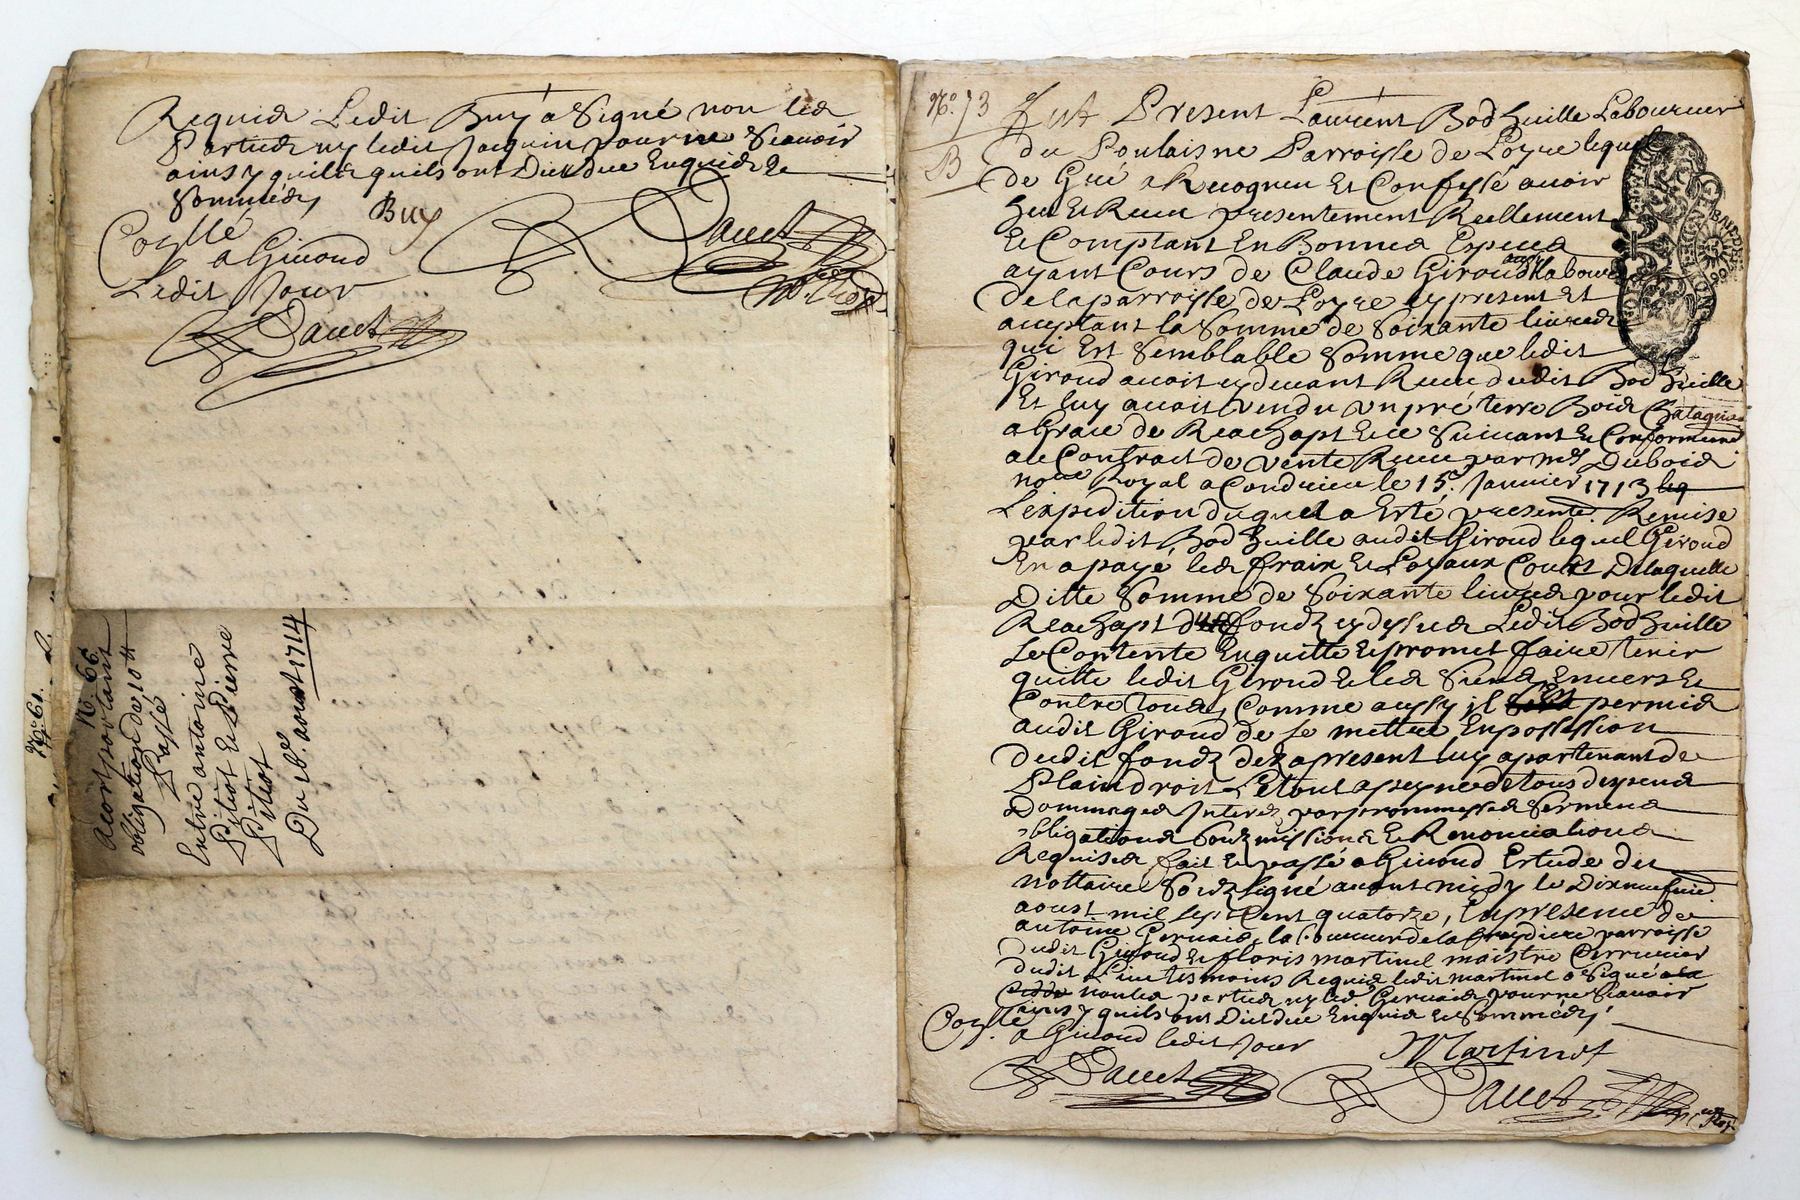 Requis Ledit Buy a Signé non les
Parties ny ledit Jacquin pour ne Scauoir
ainsy quils ont Dict due Enquis &
Sommés
Buy
Coytté
a Giuord
Ledit Jour
Dauet
Dauet
No: 61.
N: 66
Acort portant
obligation de 10 tt
Passé
Entre antoine
Pitiot Et Pierre
Pitiot
Du 18e. aoust 1714
No. 73
B
Fut Present Laurent Bodhuille Laboureur
du Poulaisne Parroisse de Loyre lequel
de Gué a Recogneu Et Confessé auoir
heu Et Receu presentement Reellement
Et Comptant En Bonnes Especes
ayant Cours de Claude Giroud aussy laboureur
de la parroisse de Loyre cy present Et
aceptant la Somme de Soixante liures
qui Est Semblable Somme que ledit
Giroud auoit cy deuant Receu dudit Bodhuille
Et luy auoit vendu vn pré terre Bois
a Grace de Reachapt Et ce Suiuant Et Conformement
au Contract de vente Receu par me Dubois
noere Royal a Condrieu le 15e. Januier 1713
L'expedition duquel a Esté presente. Remise
par ledit Bodhuille audit Giroud lequel Giroud
En a payé les frais Et Loyaux Couts De laquelle
Ditte Somme de Soixante liures pour ledit
Reachapt du fondz cy dessus Ledit Bodhuille
Se Contente En quitte Et promet faire tenir
quitte ledit Giroud Et les Siens Enuers Et
Contre tous, Comme aussy il Est permis
audit Giroud de Se mettre En possession
dudit fondz dez a present luy apartenant de
Plain droit. Le tout a peyne de tous despens
Dommages Interez par prommesses Sermens
obligations Soubzmissions Et Renonciations
Requises fait Et passé a Giuord Estude du
nottaire Soubzsigné auant midy le Dixneufuie.
aoust mil sept Cent quatorze, En presence de
antoine Geruais laboureur de la parroisse
dudit Giuord Et floris martinet maistre Serrurier
dudit Lieu tesmoins Requis ledit martinet a Signé
non les parties ny led Geruais pour ne Scauoir
ainsy quils ont Dict due Enquis Et Sommés
Coytté
a Giuord ledit Jour
Martinet
Dauet
Dauet